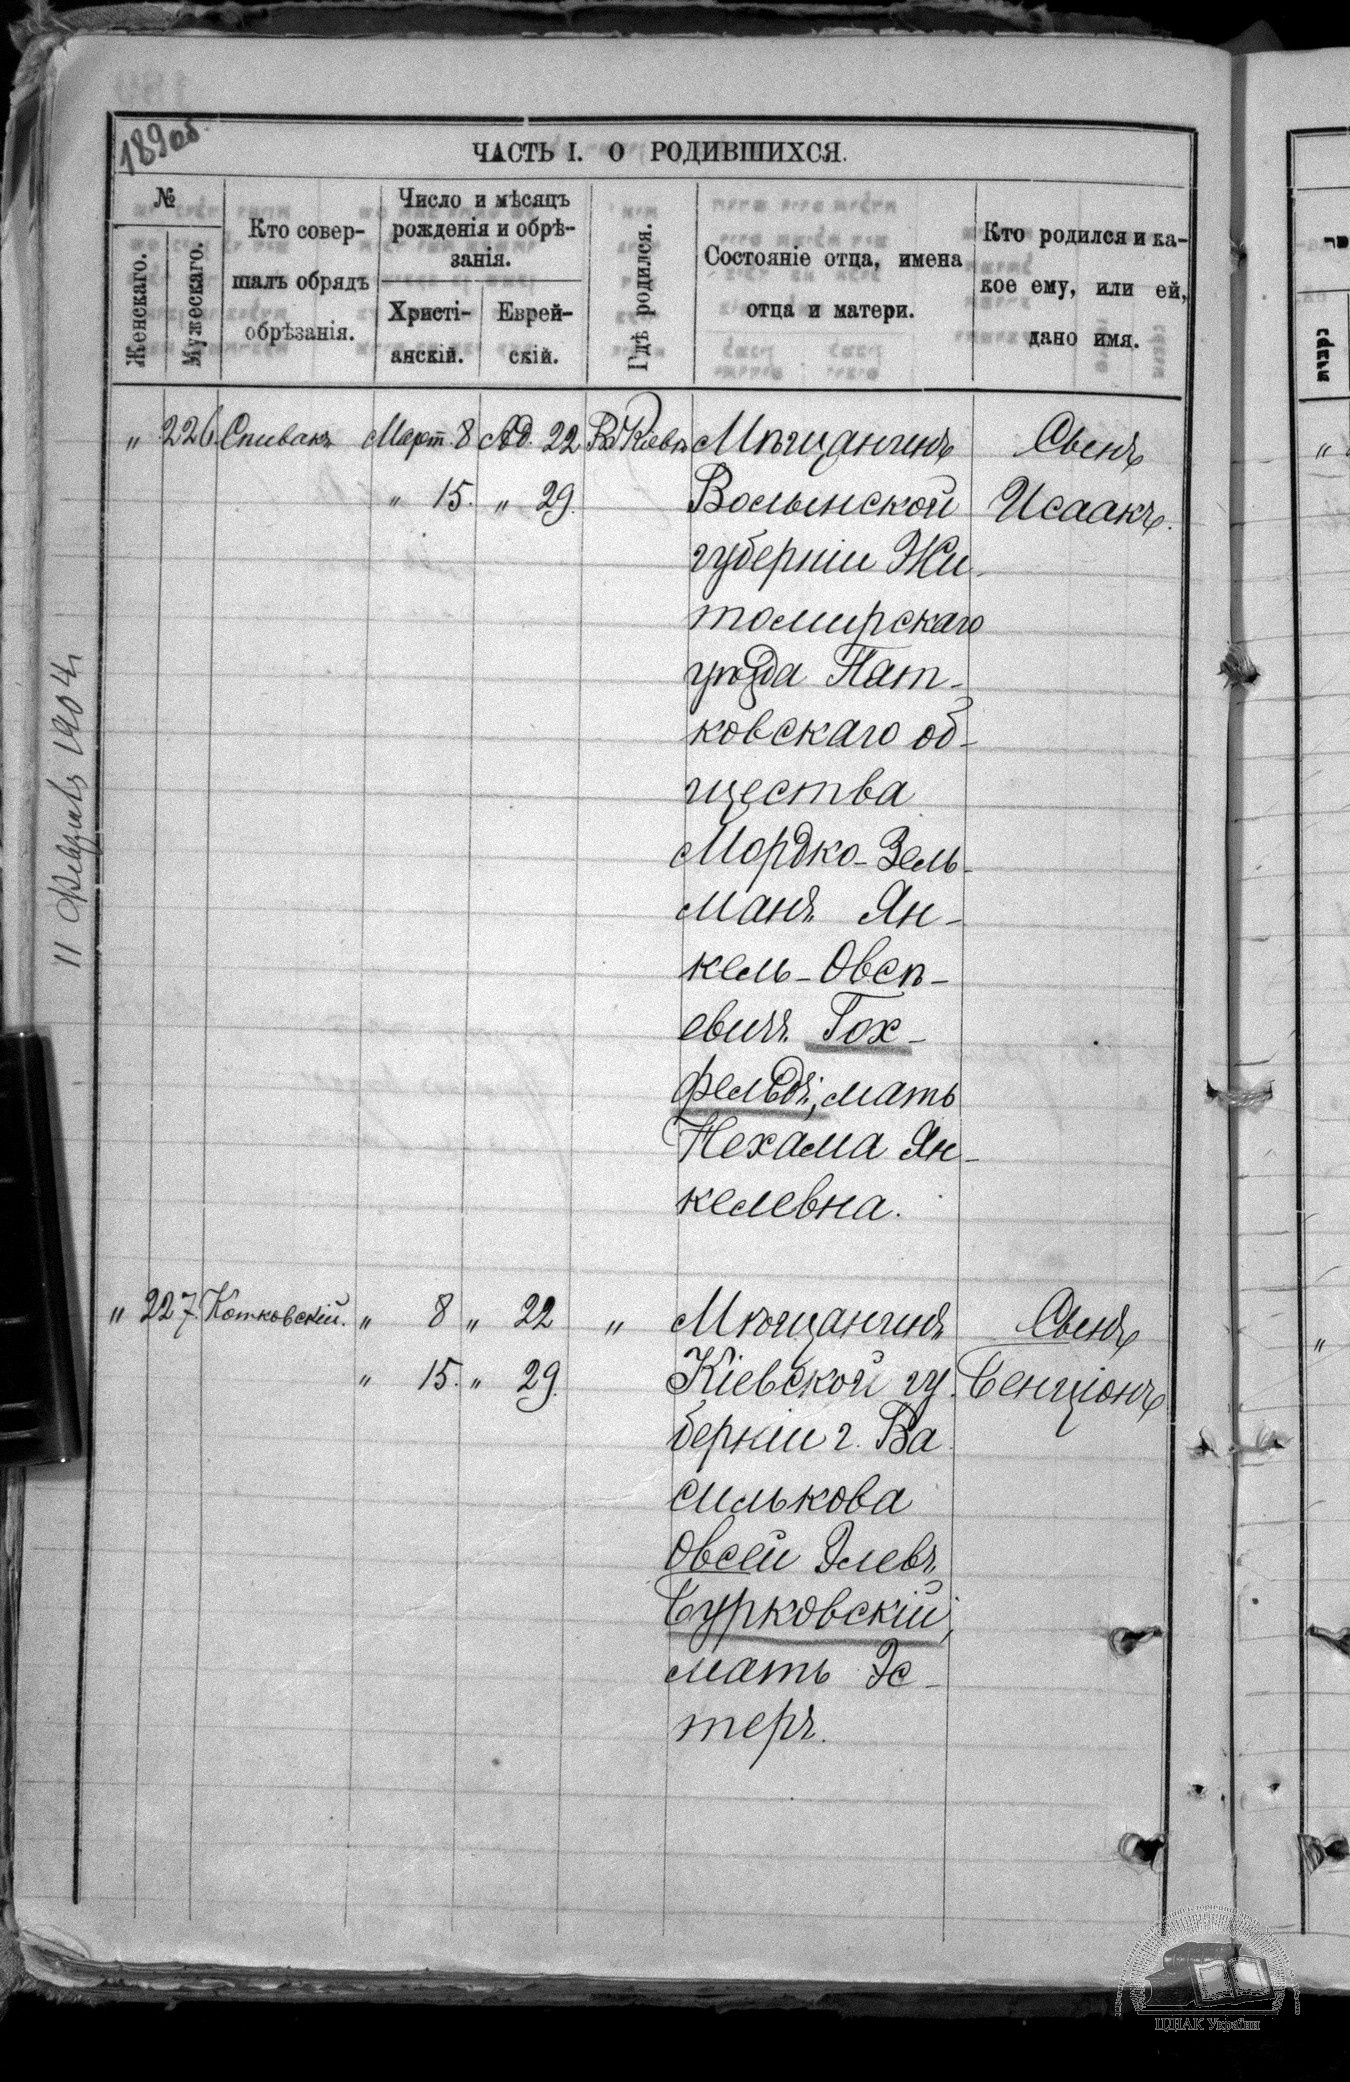 189об.
ЧАСТЬ I. О РОДИВШИХСЯ.
№
Женскаго.
Мужескаго.
Кто совер-
шалъ обрядъ
обрѣзанія.
Число и мѣсяцъ
рожденія и обрѣ-
занія.
Христі-
анскій.
Еврей-
скій.
Гдѣ родился.
Состояніе отца, имена
отца и матери.
Кто родился и ка-
кое ему, или ей,
дано имя.
„ 226 Спивакъ Март. 8 Ад. 22 Въ Кіевѣ Мѣщанинъ Сынъ
„ 15. „ 29. Волынской Исаакъ.
губерніи Жи-
томирскаго
уѣзда Пат-
ковскаго об-
щества
Мордко-Зель-
манъ Ян-
кель-Овсѣ-
евичъ Гох-
фельдъ, мать
Нехама Ян-
келевна.
„ 227. Котковскій. „ 8 „ 22 „ Мѣщанинъ Сынъ
„ 15. „ 29. Кіевской гу- Бенціонъ
берніи г. Ва-
силькова
Овсей Элевъ
Бурковскій,
мать Эс-
теръ.
11 Февраль 1904
ЦНАК України